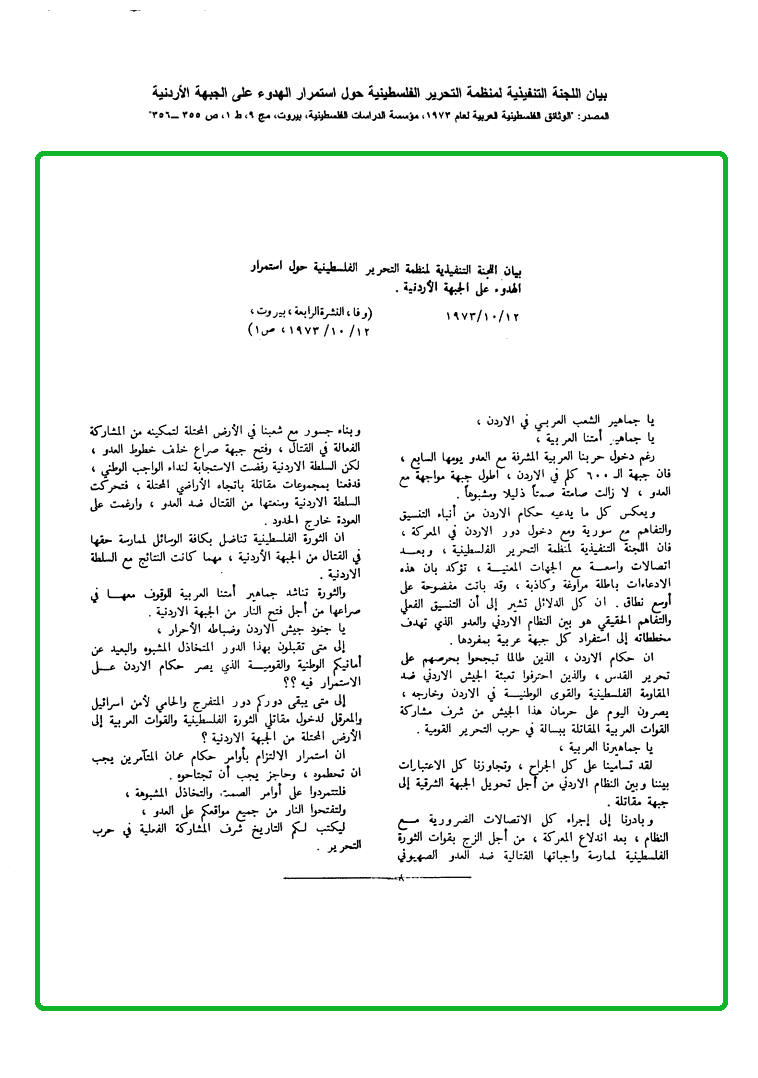 بيان اللجنة التنفيذية لمنظمة التحرير الفلسطينية حول استمرار الهدوء على الجبهة الأردنية
المصدر: "الوثائق الفلسطينية العربية لعام ١٩٧٣، مؤسسة الدراسات الفلسطينية، بيروت، مج ٩، ط ١، ص ٣٥٥ – ٣٥٦"
بيان اللجنة التنفيذية لمنظمة التحرير الفلسطينية حول استمرار
الهدوء على الجبهة الأردنية .
١٩٧٣/١٠/١٢
(وفا، النشرة الرابعة، بيروت،
١٩٧٣/١٠/١٢، ص ١)
يا جماهير الشعب العربي في الاردن ،
يا جماهير أمتنا العربية ،
رغم دخول حربنا العربية المشرفة مع العدو يومها السابع ،
فان جبهة الـ ٦٠٠ كلم في الاردن ، اطول جبهة مواجهة مع
العدو ، لا زالت صامتة صمتاً ذليلا ومشبوهاً .
وبعكس كل ما يدعيه حكام الاردن من أنباء التنسيق
والتفاهم مع سورية ومع دخول دور الاردن في المعركة ،
فان اللجنة التنفيذية لمنظمة التحرير الفلسطينية ، وبعد
اتصالات واسعة مع الجهات المعنية ، تؤكد بان هذه
الادعاءات باطلة مراوغة وكاذبة ، وقد باتت مفضوحة على
أوسع نطاق . ان كل الدلائل تشير إلى أن التنسيق الفعلي
والتفاهم الحقيقي هو بين النظام الاردني والعدو الذي تهدف
مخططاته إلى استفراد كل جبهة عربية بمفردها .
ان حكام الاردن ، الذين طالما تبجحوا بحرصهم على
تحرير القدس ، والذين احترفوا تعبئة الجيش الاردني ضد
المقاومة الفلسطينية والقوى الوطنية في الاردن وخارجه ،
يصرون اليوم على حرمان هذا الجيش من شرف مشاركة
القوات العربية المقاتلة ببسالة في حرب التحرير القومية .
يا جماهيرنا العربية ،
لقد تسامينا على كل الجراح ، وتجاوزنا كل الاعتبارات
بيننا وبين النظام الاردني من أجل تحويل الجبهة الشرقية إلى
جبهة مقاتلة .
وبادرنا إلى إجراء كل الاتصالات الضرورية مع
النظام ، بعد اندلاع المعركة ، من أجل الزج بقوات الثورة
الفلسطينية لممارسة واجباتها القتالية ضد العدو الصهيوني
وبناء جسور مع شعبنا في الأرض المحتلة لتمكينه من المشاركة
الفعالة في القتال ، وفتح جبهة صراع خلف خطوط العدو ،
لكن السلطة الاردنية رفضت الاستجابة لنداء الواجب الوطني ،
فدفعنا بمجموعات مقاتلة باتجاه الأراضي المحتلة ، فتحركت
السلطة الاردنية ومنعتها من القتال ضد العدو ، وارغمت على
العودة خارج الحدود .
ان الثورة الفلسطينية تناضل بكافة الوسائل لممارسة حقها
في القتال من الجبهة الأردنية ، مهما كانت النتائج مع السلطة
الاردنية .
والثورة تناشد جماهير أمتنا العربية للوقوف معها في
صراعها من أجل فتح النار من الجبهة الاردنية .
يا جنود جيش الاردن وضباطه الأحرار ،
إلى متى تقبلون بهذا الدور المتخاذل المشبوه والبعيد عن
أمانيكم الوطنية والقومية الذي يصر حكام الاردن على
الاستمرار فيه ؟؟
إلى متى يبقى دوركم دور المتفرج والحامي لأمن اسرائيل
والمعرقل لدخول مقاتلي الثورة الفلسطينية والقوات العربية إلى
الأرض المحتلة من الجبهة الاردنية ؟
ان استمرار الالتزام بأوامر حكام عمان المتآمرين يجب
ان تحطموه ، وحاجز يجب أن تجتاحوه .
فلتتمردوا على أوامر الصمت والتخاذل المشبوهة ،
ولتفتحوا النار من جميع مواقعكم على العدو ،
ليكتب لكم التاريخ شرف المشاركة الفعلية في حرب
التحرير .